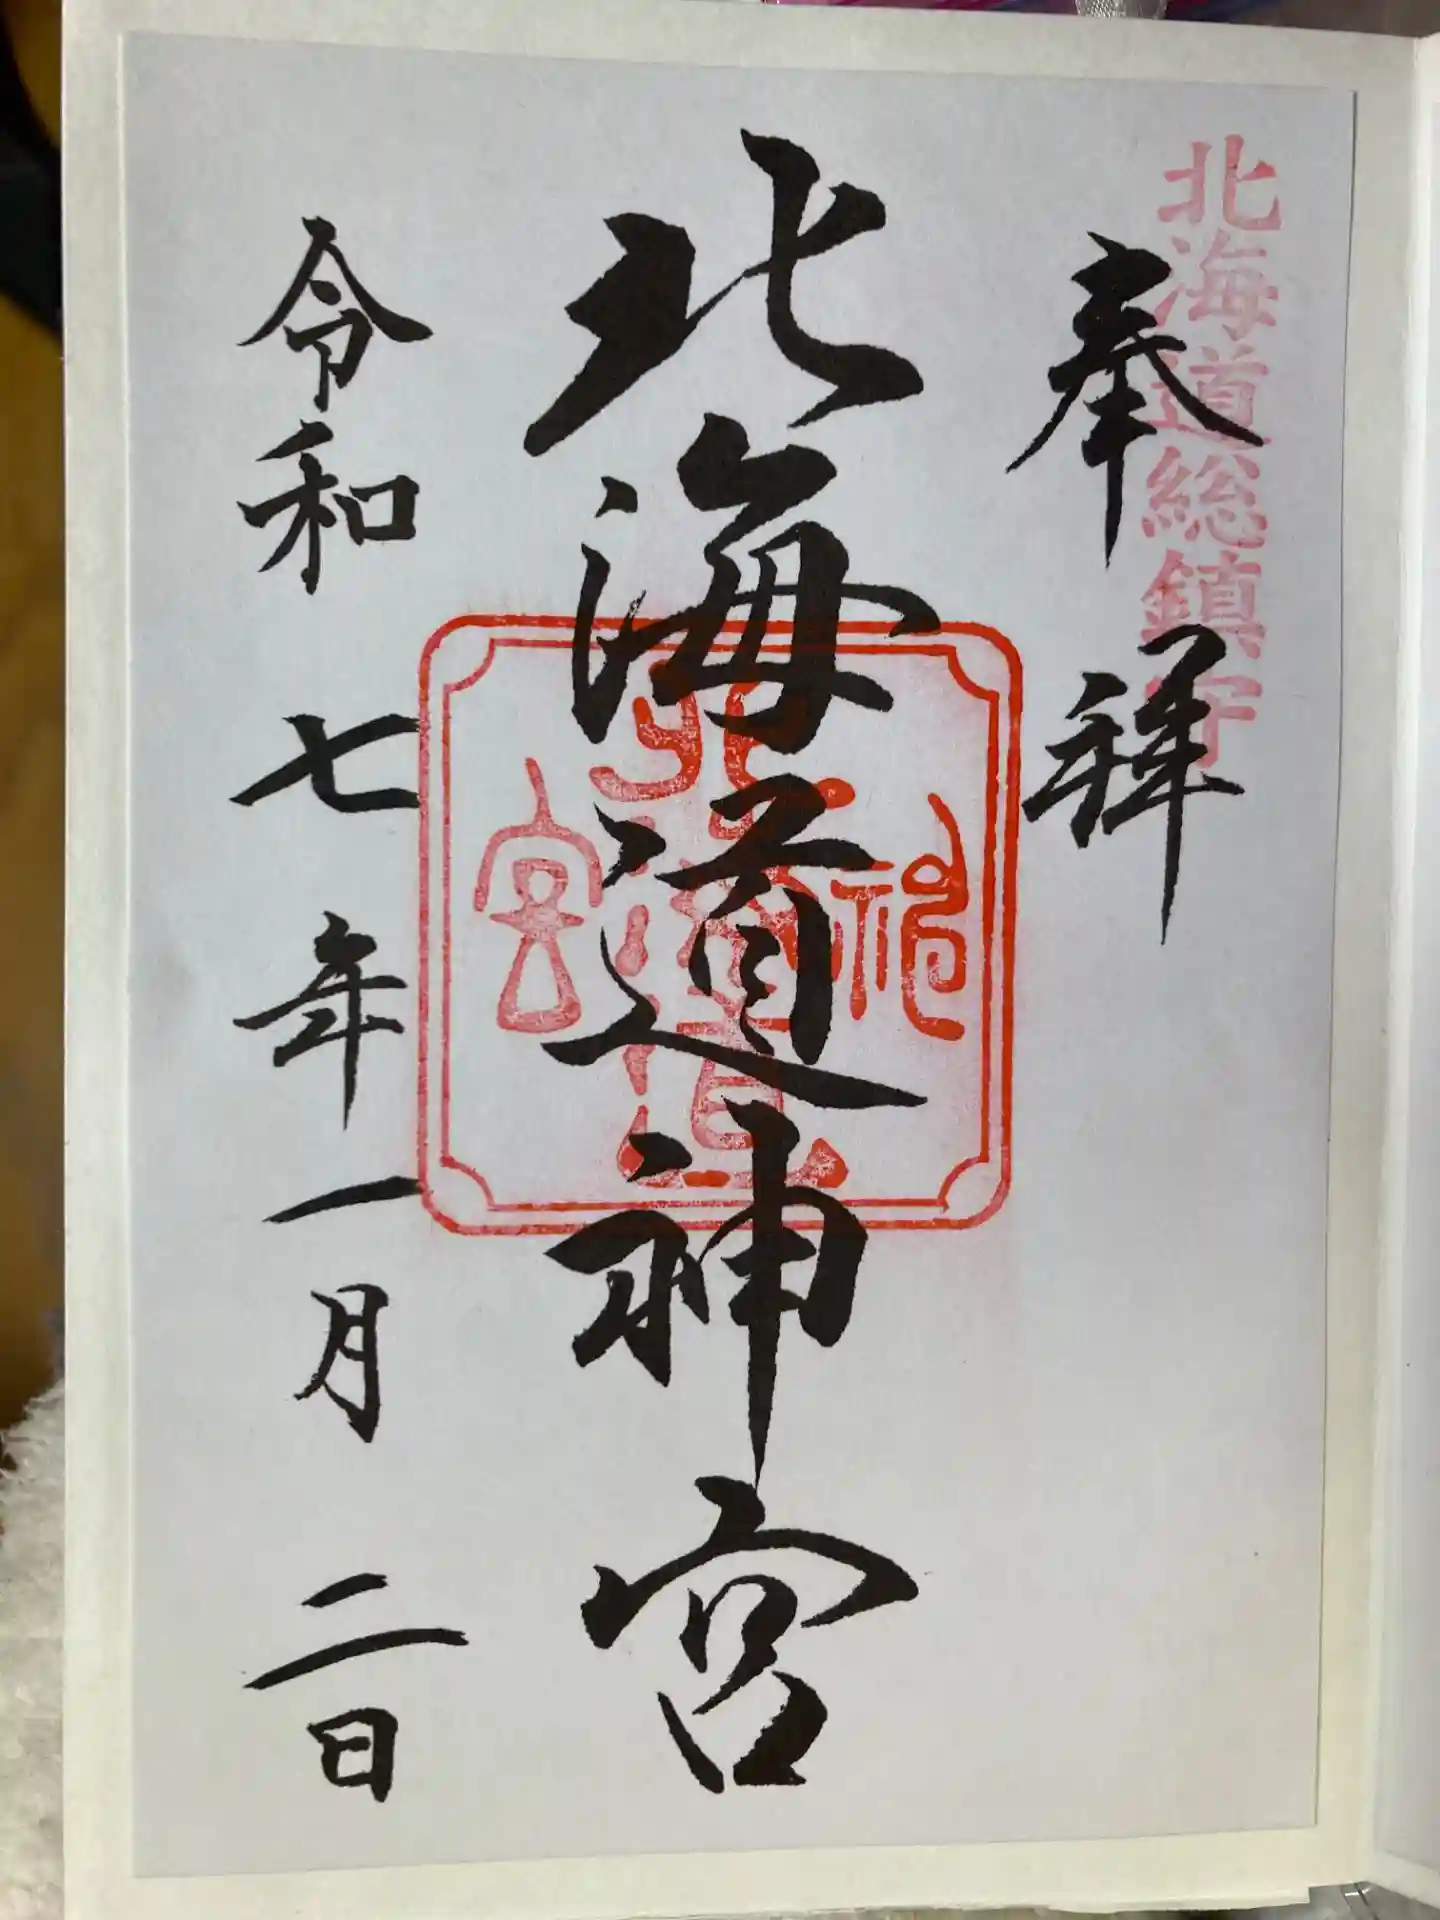 北海道総鎮守
奉拝
北海道神宮
北海道神宮
令和七年一月二日